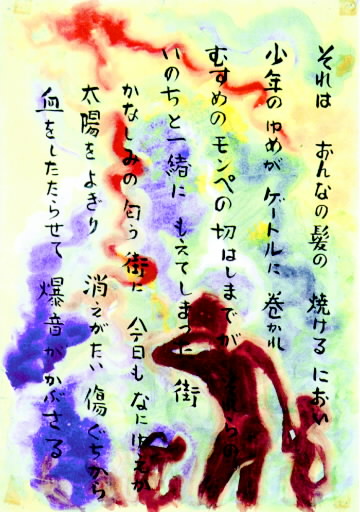 それは おんなの髪の 焼けるにおい
少年のゆめが ゲートルに 巻かれ
むすめのモンペの切はしまでが
いのちと一緒に もえてしまった 街
かなしみの匂う 街に 今日も
太陽をよぎり 消えがたい 傷ぐちから
血をしたたらせて 爆音が かぶさる